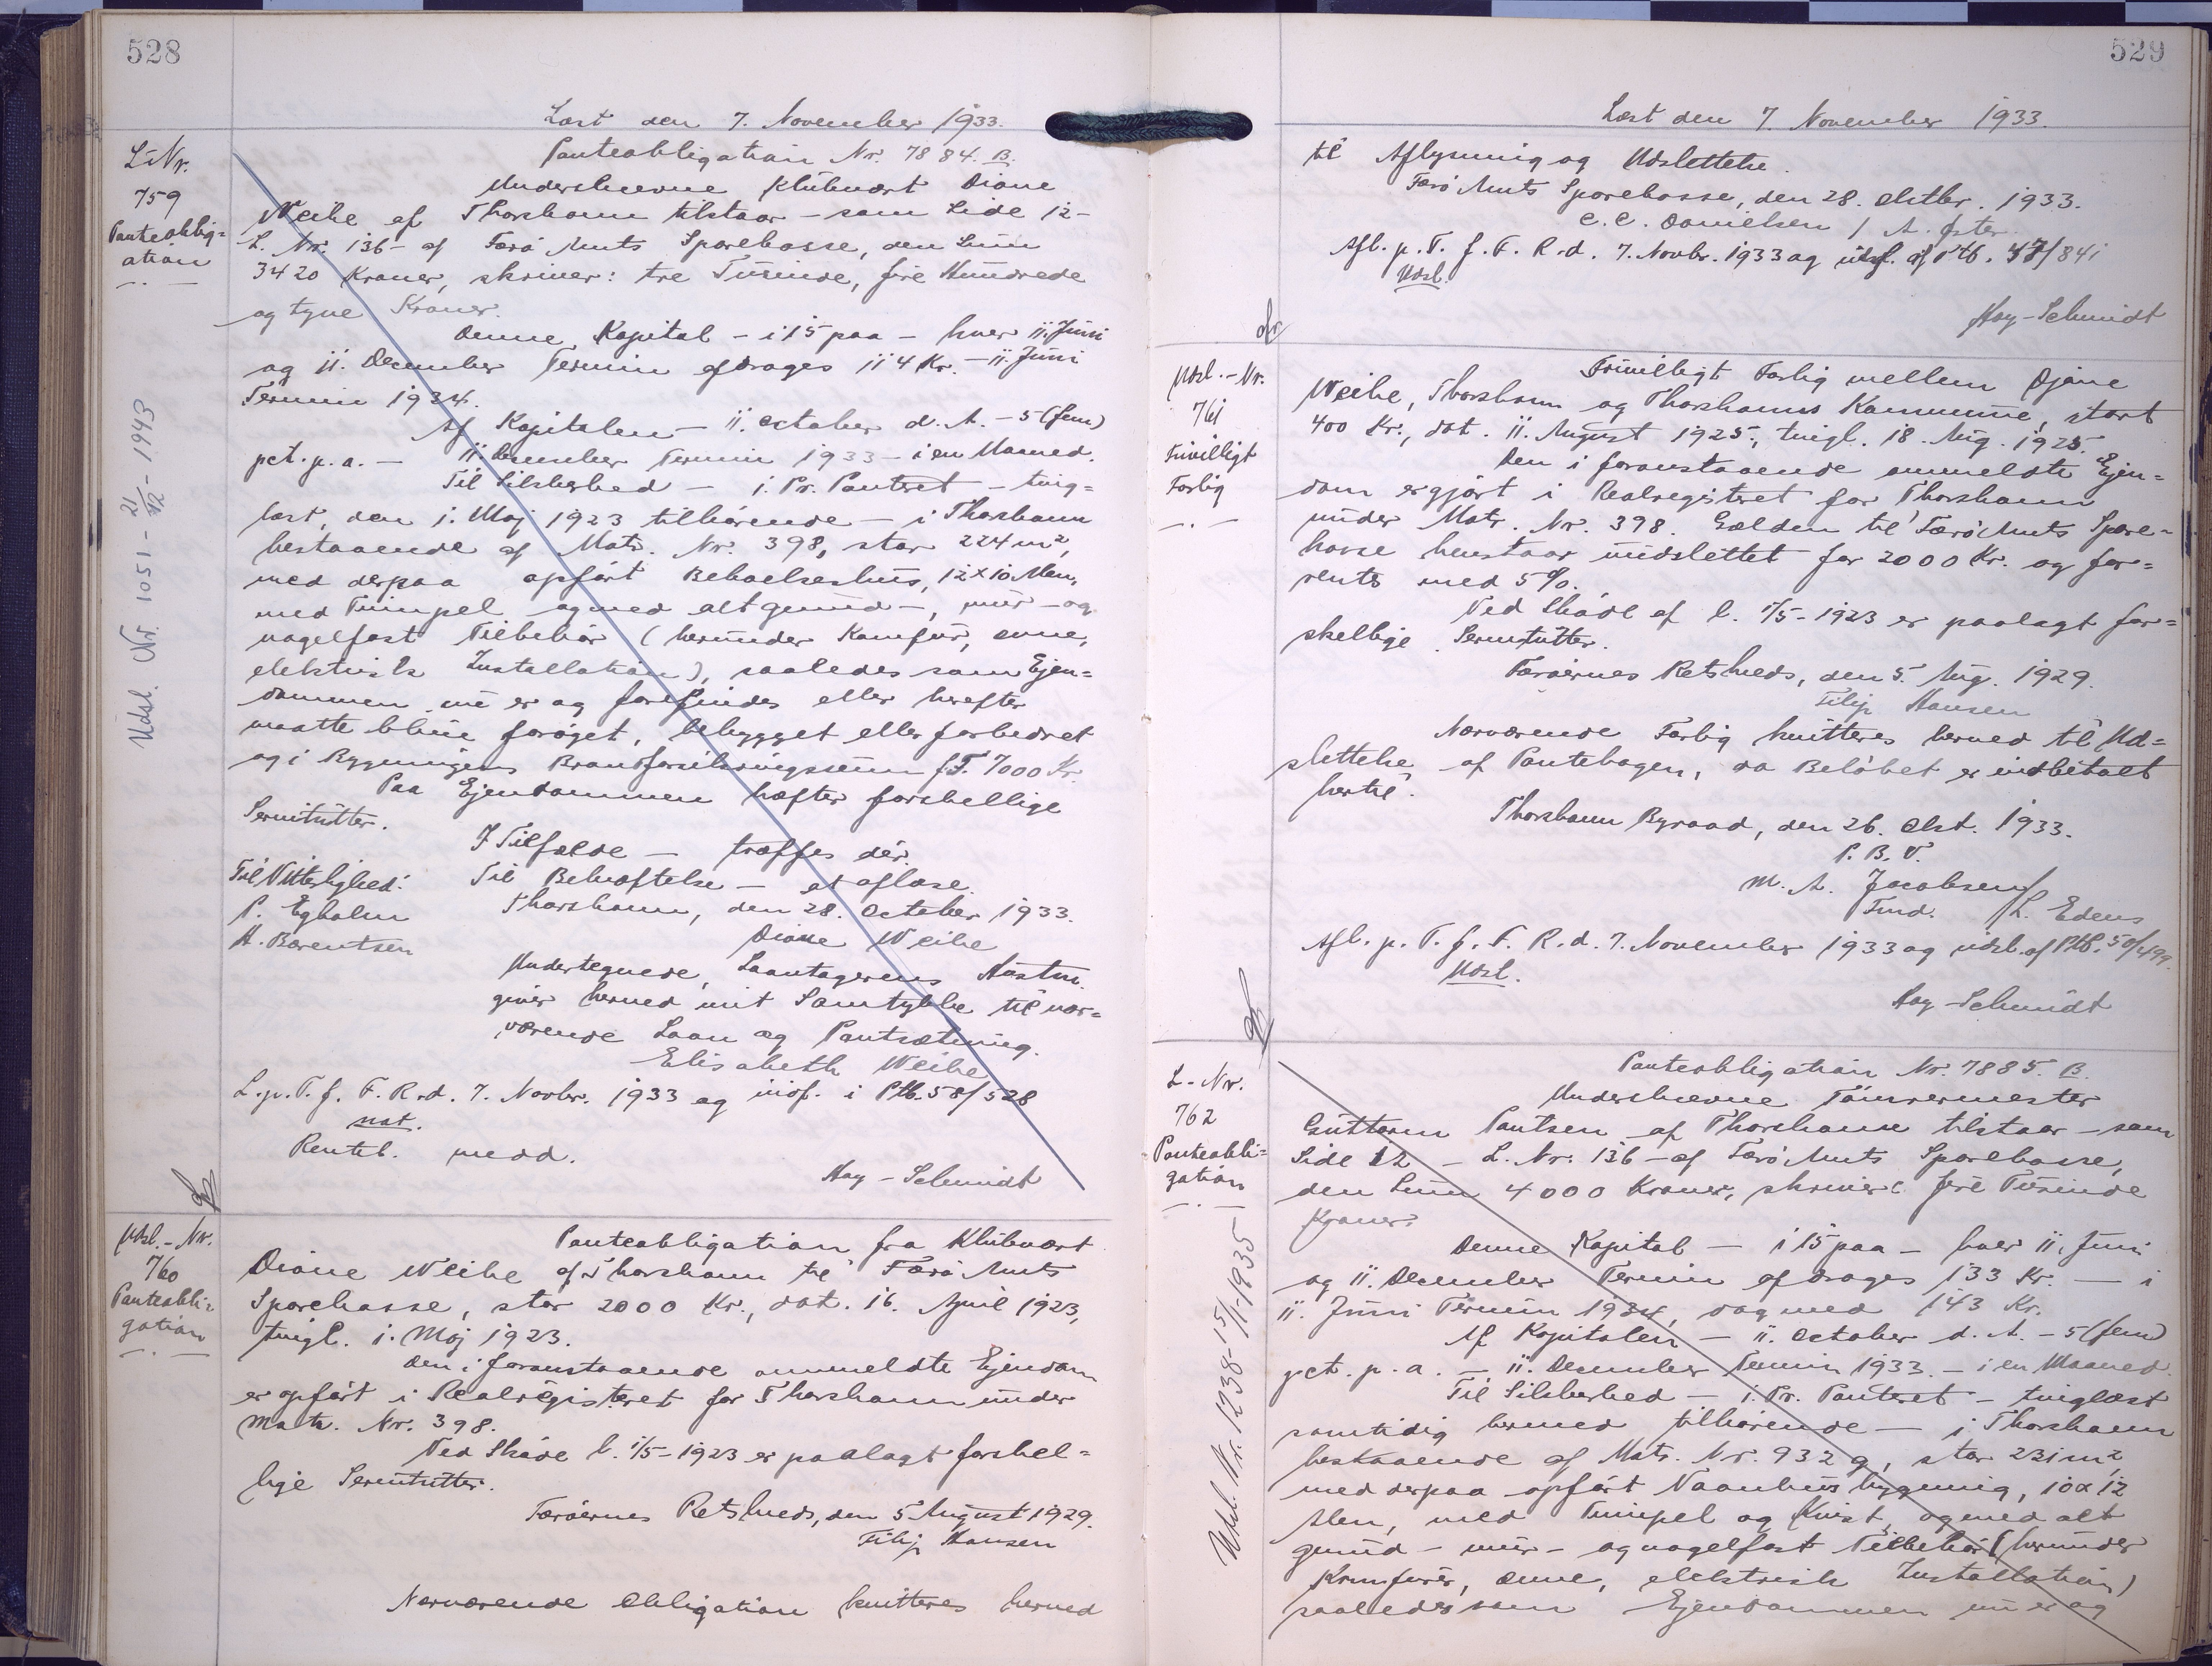 528
Læst den 7. November 1933.
L-Nr.
759
Panteoblig=
ation
Udsl. Nr. 1051 - 21/12 - 1943
Panteobligation Nr. 7884. B.
Underskrevne Klubvært Dione
Weihe af Thorshavn tilstaar - som Side 12 -
L. Nr. 136 - af Færø Amts Sparekasse, den Sum
3420 Kroner, skriver: tre Tusinde, fire Hundrede
og tyve Kroner.
Denne Kapital - i 15 paa - hver 11. Juni
og 11. December Termin afdrages 114 Kr. - 11. Juni
Termin 1934.
Af Kapitalen - 11. October d. A. - 5 (fem)
pct. p. a. - 11. December Termin 1933 - i en Maaned.
Til Sikkerhed - 1. Pr. Panteret - ting=
læst, den 1. Maj 1923 tilhørende - i Thorshavn
bestaaende af Matr. Nr. 398, stor 224 m²,
med derpaa opført Beboelseshus, 12 x 10 Alen,
med Tuimpel og med alt grund-, mur- og
nagelfast Tilbehør (herunder Komfur, ovne,
elektrisk Installation), saaledes som Ejen=
dommen nu er og forefindes eller herefter
maatte blive forøget, bebygget eller forbedret
og i Bygningens Brandforsikringssum f.T. 7000 Kr.
Paa Ejendommen hæfter forskellige
Servitutter.
I Tilfælde - træffes dér.
Til Vitterlighed: Til Bekræftelse - at aflæse.
P. Egholm Thorshavn, den 28. October 1933.
H. Berentsen Dione Weihe
Undertegnede, Laantagerens Hustru
giver herved mit Samtykke til nær=
værende Laan og Pantsætning.
Elisabeth Weihe
L. p. T. f. F. R. d. 7. Novbr. 1933 og indf. i Ptb. 58/528
not.
Renteb. medd.
Hoy-Schmidt
Udsl.-Nr.
760
Panteobli=
gation
Panteobligation fra Klubvært
Dione Weihe af Thorshavn til Færø Amts
Sparekasse, stor 2000 Kr., dat. 16. April 1923,
tingl. 1. Maj 1923.
Den i foranstaaende anmeldte Ejendom
er opført i Realregisteret for Thorshavn under
Matr. Nr. 398.
Ved Skøde l. 1/5-1923 er paalagt forskel=
lige Servitutter.
Færøernes Retskreds, den 5 August 1929.
Filip Hansen
Nærværende Obligation kvitteres herved
529
Læst den 7. November 1933.
til Aflysning og Udslettelse.
Færø Amts Sparekasse, den 28. Oktbr. 1933.
C. C. Danielsen / A.
Afl. p. T. f. F. R. d. 7. Novbr. 1933 og udsl. af Ptb. 47/841
Udsl.
Hoy-Schmidt
Udsl.-Nr.
761
Frivilligt
Forlig
Frivilligt Forlig mellem Djóne
Weihe, Thorshavn og Thorshavns Kommune, stort
400 Kr., dat. 11. August 1925, tingl. 18. Aug. 1925.
Den i foranstaaende anmeldte Ejen=
dom er gjört i Realregistret for Thorshavn
under Matr. Nr. 398. Gælden til Færø Amts Spare=
kasse henstaar uudslettet for 2000 Kr. og for=
rentes med 5%.
Ved Skøde af l. 1/5-1923 er paalagt for=
skellige Servitutter.
Færøernes Retskreds, den 5. Aug. 1929.
Filip Hansen
Nærværende Forlig kvitteres herved til Ud=
slettelse af Pantebogen, da Beløbet er indbetalt
hertil.
Thorshavn Byraad, den 26. Okt. 1933.
P. B. V.
M. A. Jacobsen/
Fmd. /L. Edens
Afl. p. T. f. F. R. d. 7. November 1933 og udsl. af Ptb. 50/499.
Udsl.
Hoy-Schmidt
L.-Nr.
762
Panteobli=
gation
Udsl. Nr. 1238 - 15/1-1935
Panteobligation Nr. 7885. B.
Underskrevne Tømrermester
Guttorm Poulsen af Thorshavn tilstaar - som
Side 12 - L. Nr. 136 - af Færø Amts Sparekasse,
den Sum 4000 Kroner, skriver: fire Tusinde
Kroner.
Denne Kapital - i 15 paa - hver 11. Juni
og 11. December Termin afdrages 133 Kr. - i
11. Juni Termin 1934, dog med 143 Kr.
Af Kapitalen - 11. October d. A. - 5 (fem)
pct. p. a. - 11. December Termin 1933. - i en Maaned.
Til Sikkerhed - 1. Pr. Panteret - tinglæst
samtidig hermed tilhørende - i Thorshavn
bestaaende af Matr. Nr. 932 g, stor 231 m²,
med derpaa opført Vaanhusbygning, 10 x 12
Alen, med Tuimpel og Kvist, og med alt
grund- mur- og nagelfast Tilbehør (herunder
Komfurer, ovne, elektrisk Installation)
saaledes som Ejendommen nu er og